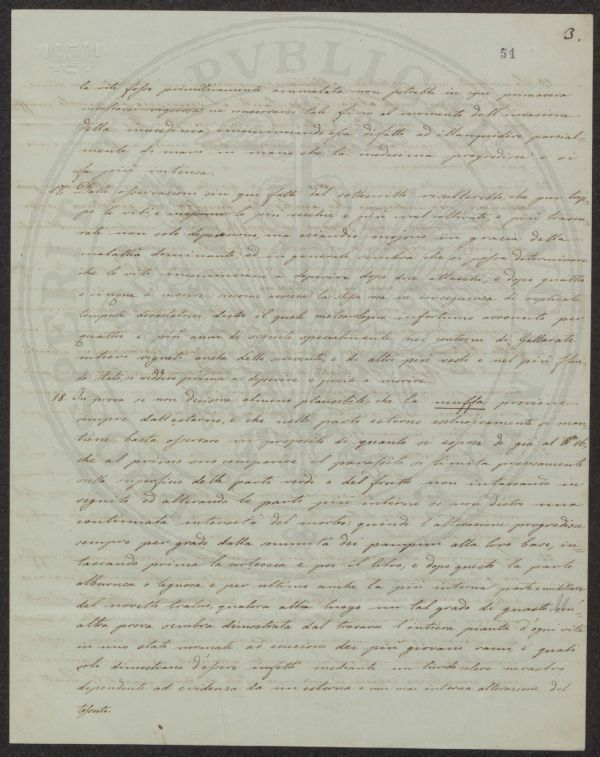 3.
51
la vite fosse primitivamente ammalata non potrebbe in ogni primavera
mostrarsi vigorosa nè conservarsi tale fino al momento dell'invasione
della mucedinea, incominciando essa difatti ad illanguidire parzial-
mente di mano in mano che la medesima progredisce e si
fa più intensa.
17. Dalle osservazioni sin qui fatte dal sottoscritto risulterebbe che pur trop-
po le viti e massime le più vecchie e più mal coltivate, e più trascu-
rate non solo deperiscono, ma eziandio muojono in grazia della
malattia dominante, ed in generale sembra che si possa determinare
che le viti incominciano a deperire dopo due attacchi, e dopo quattro
o cinque a morire, siccome avviene la stessa cosa in conseguenza di replicate
tempeste devastatrici; dietro il quale meteorologico infortunio avvenuto per
quattro e più anni di seguito specialmente nei contorni di Gallarate
intieri vigneti anche dello scrivente, e di altri più vasti e nel più flori-
do stato, si viddero prima a deperire e poscia a morire.
18. In prova se non decisiva almeno plausibile che la muffa proviene
sempre dall'esterno, e che nelle parti esterne esclusivamente si man-
tiene, basta osservare in proposito di quanto si espose di già al N.º 16,
che al primo suo comparire il parassito si limita precisamente
sulla superficie delle parti verdi o del frutto non intaccando in
seguito ed alterando le parti più interne se non dietro una
continuata intensità del morbo: quindi l'alterazione progredisce
sempre per gradi dalla sommità dei pampini alla loro base, in-
taccando prima la corteccia e poi il libro, e dopo questo la parte
alburnea o legnosa, e per ultimo anche la più interna parte midollare
del novello tralcio, qualora abbia luogo un tal grado di guasto. Un'
altra prova sembra dimostrata dal trovarsi l'intiera pianta d'ogni vite
in uno stato normale ad eccezione dei più giovani rami, i quali
soli dimostrano d'essere infetti mediante un livido colore nerastro
dipendente ad evidenza da un'esterna e non mai interna alterazione del
tessuto.